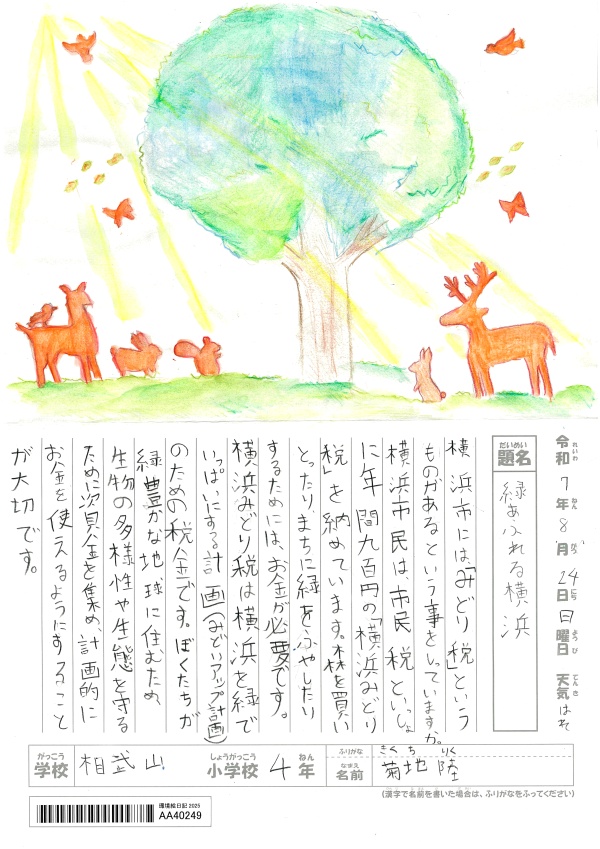 令和7年8月24日日曜日 天気はれ
題名 緑あふれる横浜
横浜市には「みどり税」という
ものがあるという事をしっていますか。
横浜市民は、市民税といっしょ
に年間九百円の「横浜みどり
税」を納めています。森を買い
とったり、まちに緑をふやしたり
するためには、お金が必要です。
横浜みどり税は横浜を緑で
いっぱいにする計画(みどりアップ計画)
のための税金です。ぼくたちが
緑豊かな地球に住むため、
生物の多様性や生態を守る
ために資金を集め、計画的に
お金を使えるようにすること
が大切です。
がっこう 学校 相武山 しょうがっこう 小学校 4 ねん 年
ふりがな きくち りく
なまえ 名前 菊地 陸
(漢字で名前を書いた場合は、ふりがなをふってください)
環境絵日記 2025
AA40249